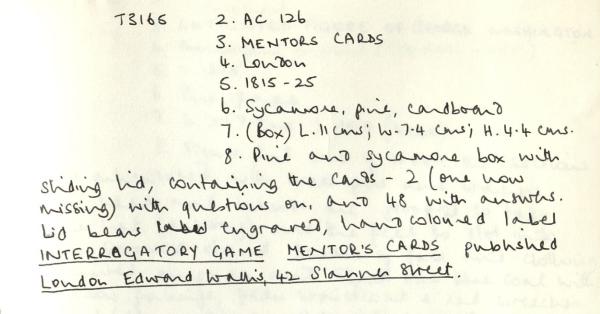 T3165 2. AC 126
3. MENTORS CARDS
4. London
5. 1815-25
6. Sycamore, pine, cardboard
7. (Box) L. 11 cms; W. 7.4 cms; H. 4.4 cms.
8. Pine and sycamore box with
sliding lid, containing the cards - 2 (one now
missing) with questions on, and 48 with answers.
Lid bears label engraved, handcoloured label
INTERROGATORY GAME MENTOR'S CARDS published
London Edward Wallis, 42 Skinner Street.